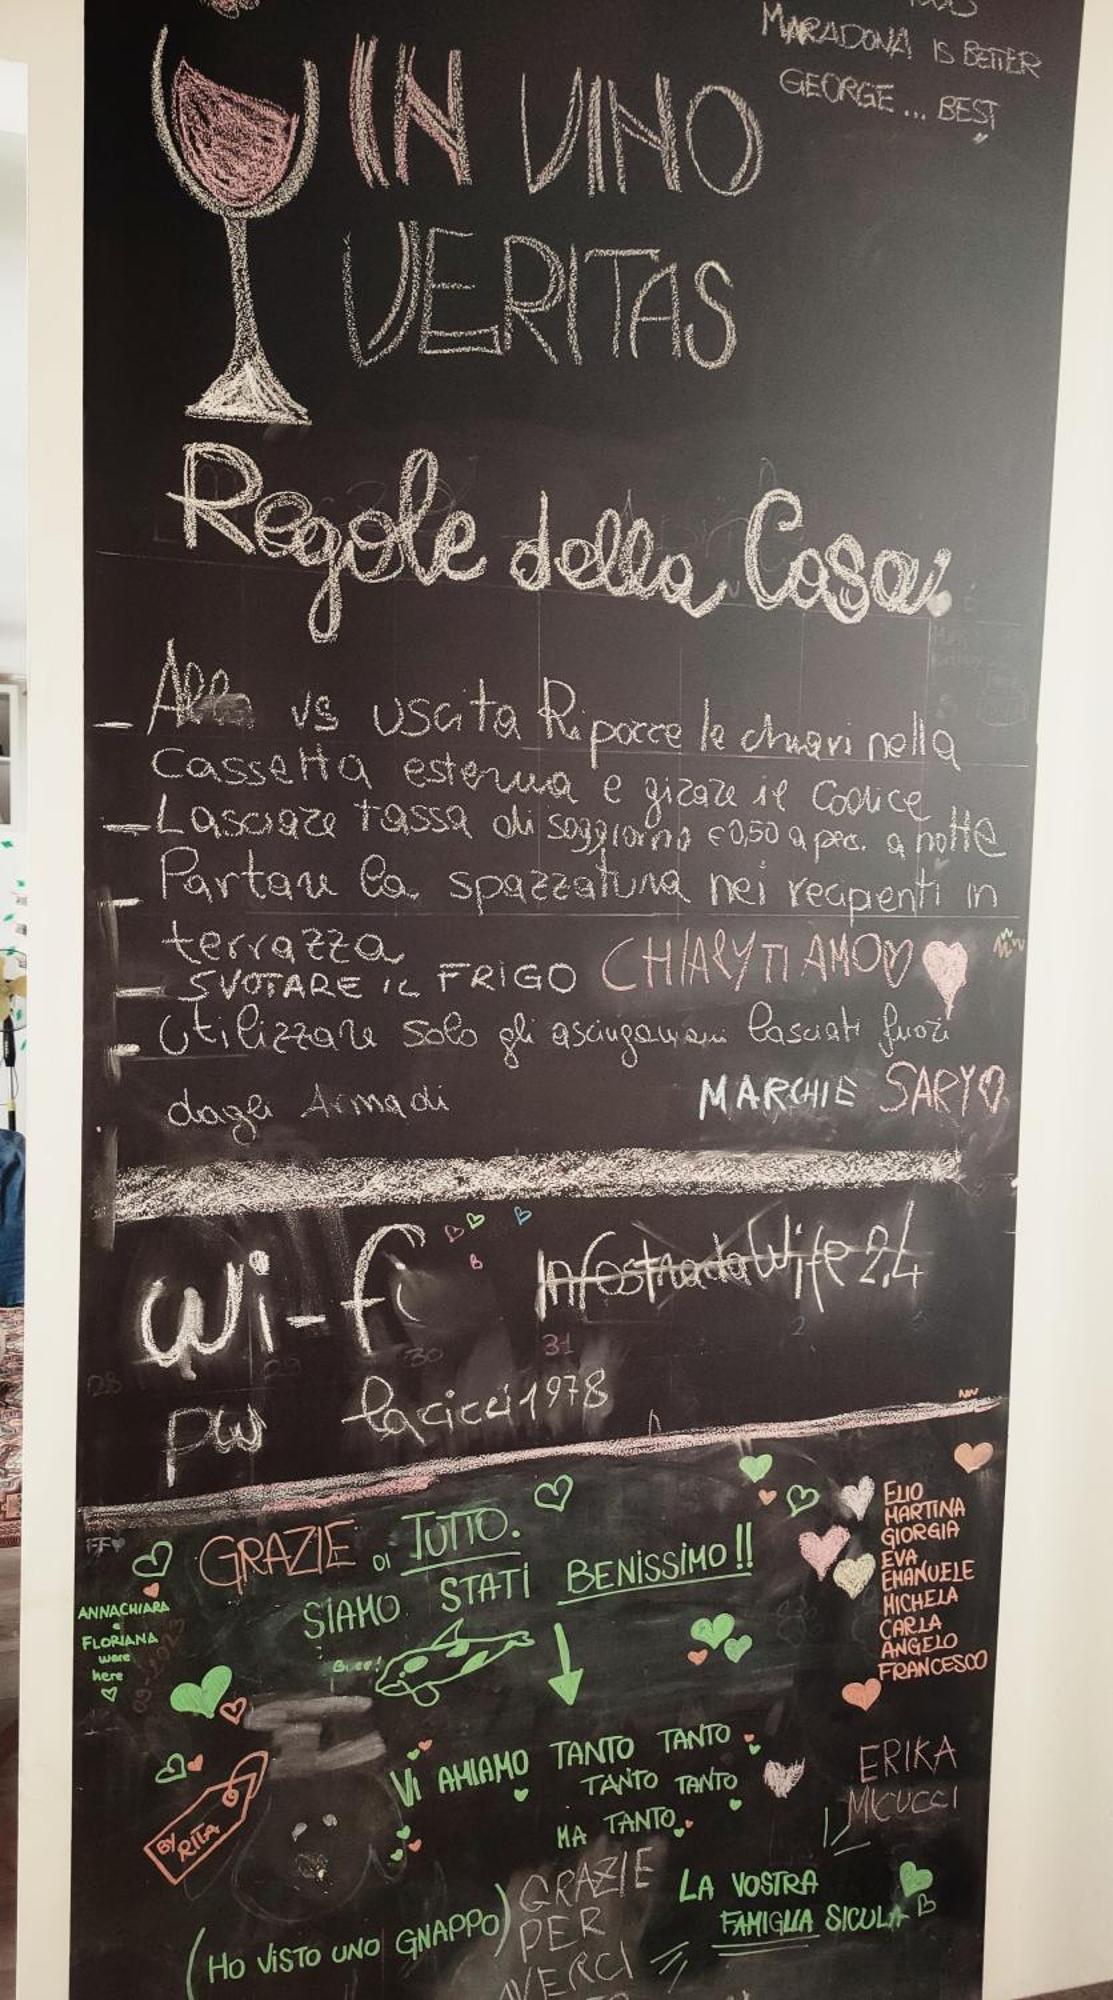 MARADONA IS BETTER
GEORGE... BEST
IN VINO
VERITAS
Regole della Casa
- Alla vs uscita Riporre le chiavi nella
Cassetta esterna e girare il Codice
- Lasciare tassa di soggiorno €0,50 a pers. a notte
- Portare la spazzatura nei recipienti in
terrazza
- SVOTARE IL FRIGO CHIARY TI AMO
- Utilizzare solo gli asciugamani lasciati fuori
dagli Armadi
MARCHIE SARY
Wi-fi InfostradaWife 2,4
28 29 30 31 2 3
pw lacicci1978
GRAZIE DI TUTTO.
SIAMO STATI BENISSIMO!!
ELIO
MARTINA
GIORGIA
EVA
EMANUELE
MICHELA
CARLA
ANGELO
FRANCESCO
ANNACHIARA
e
FLORIANA
were
here
VI AMIAMO TANTO TANTO
TANTO TANTO
MA TANTO
ERIKA
MICUCCI
BY RITA
LA VOSTRA
FAMIGLIA SICULA
(HO VISTO UNO GNAPPO)
GRAZIE
PER
AVERCI